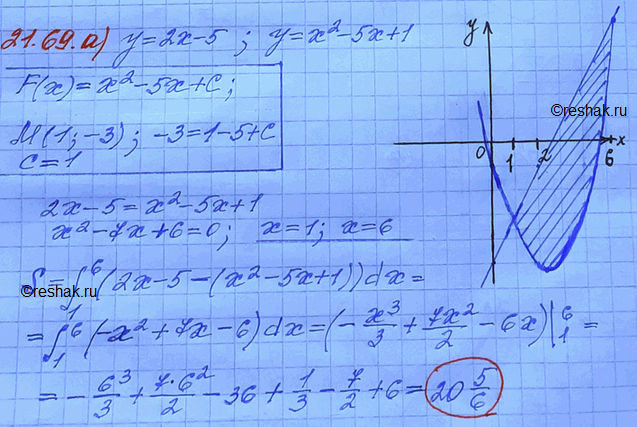 21.69.а) y=2x-5 ; y=x²-5x+1
F(x)=x²-5x+C;
M(1;-3); -3=1-5+C
C=1
2x-5=x²-5x+1
x²-7x+6=0; x=1; x=6
S=∫₁⁶(2x-5-(x²-5x+1))dx=
=∫₁⁶(-x²+7x-6)dx=(-x³/3+7x²/2-6x)|₁⁶=
=-6³/3+7·6²/2-36+1/3-7/2+6=20 5/6
y
x
0
1
2
6
©reshak.ru
©reshak.ru
©reshak.ru